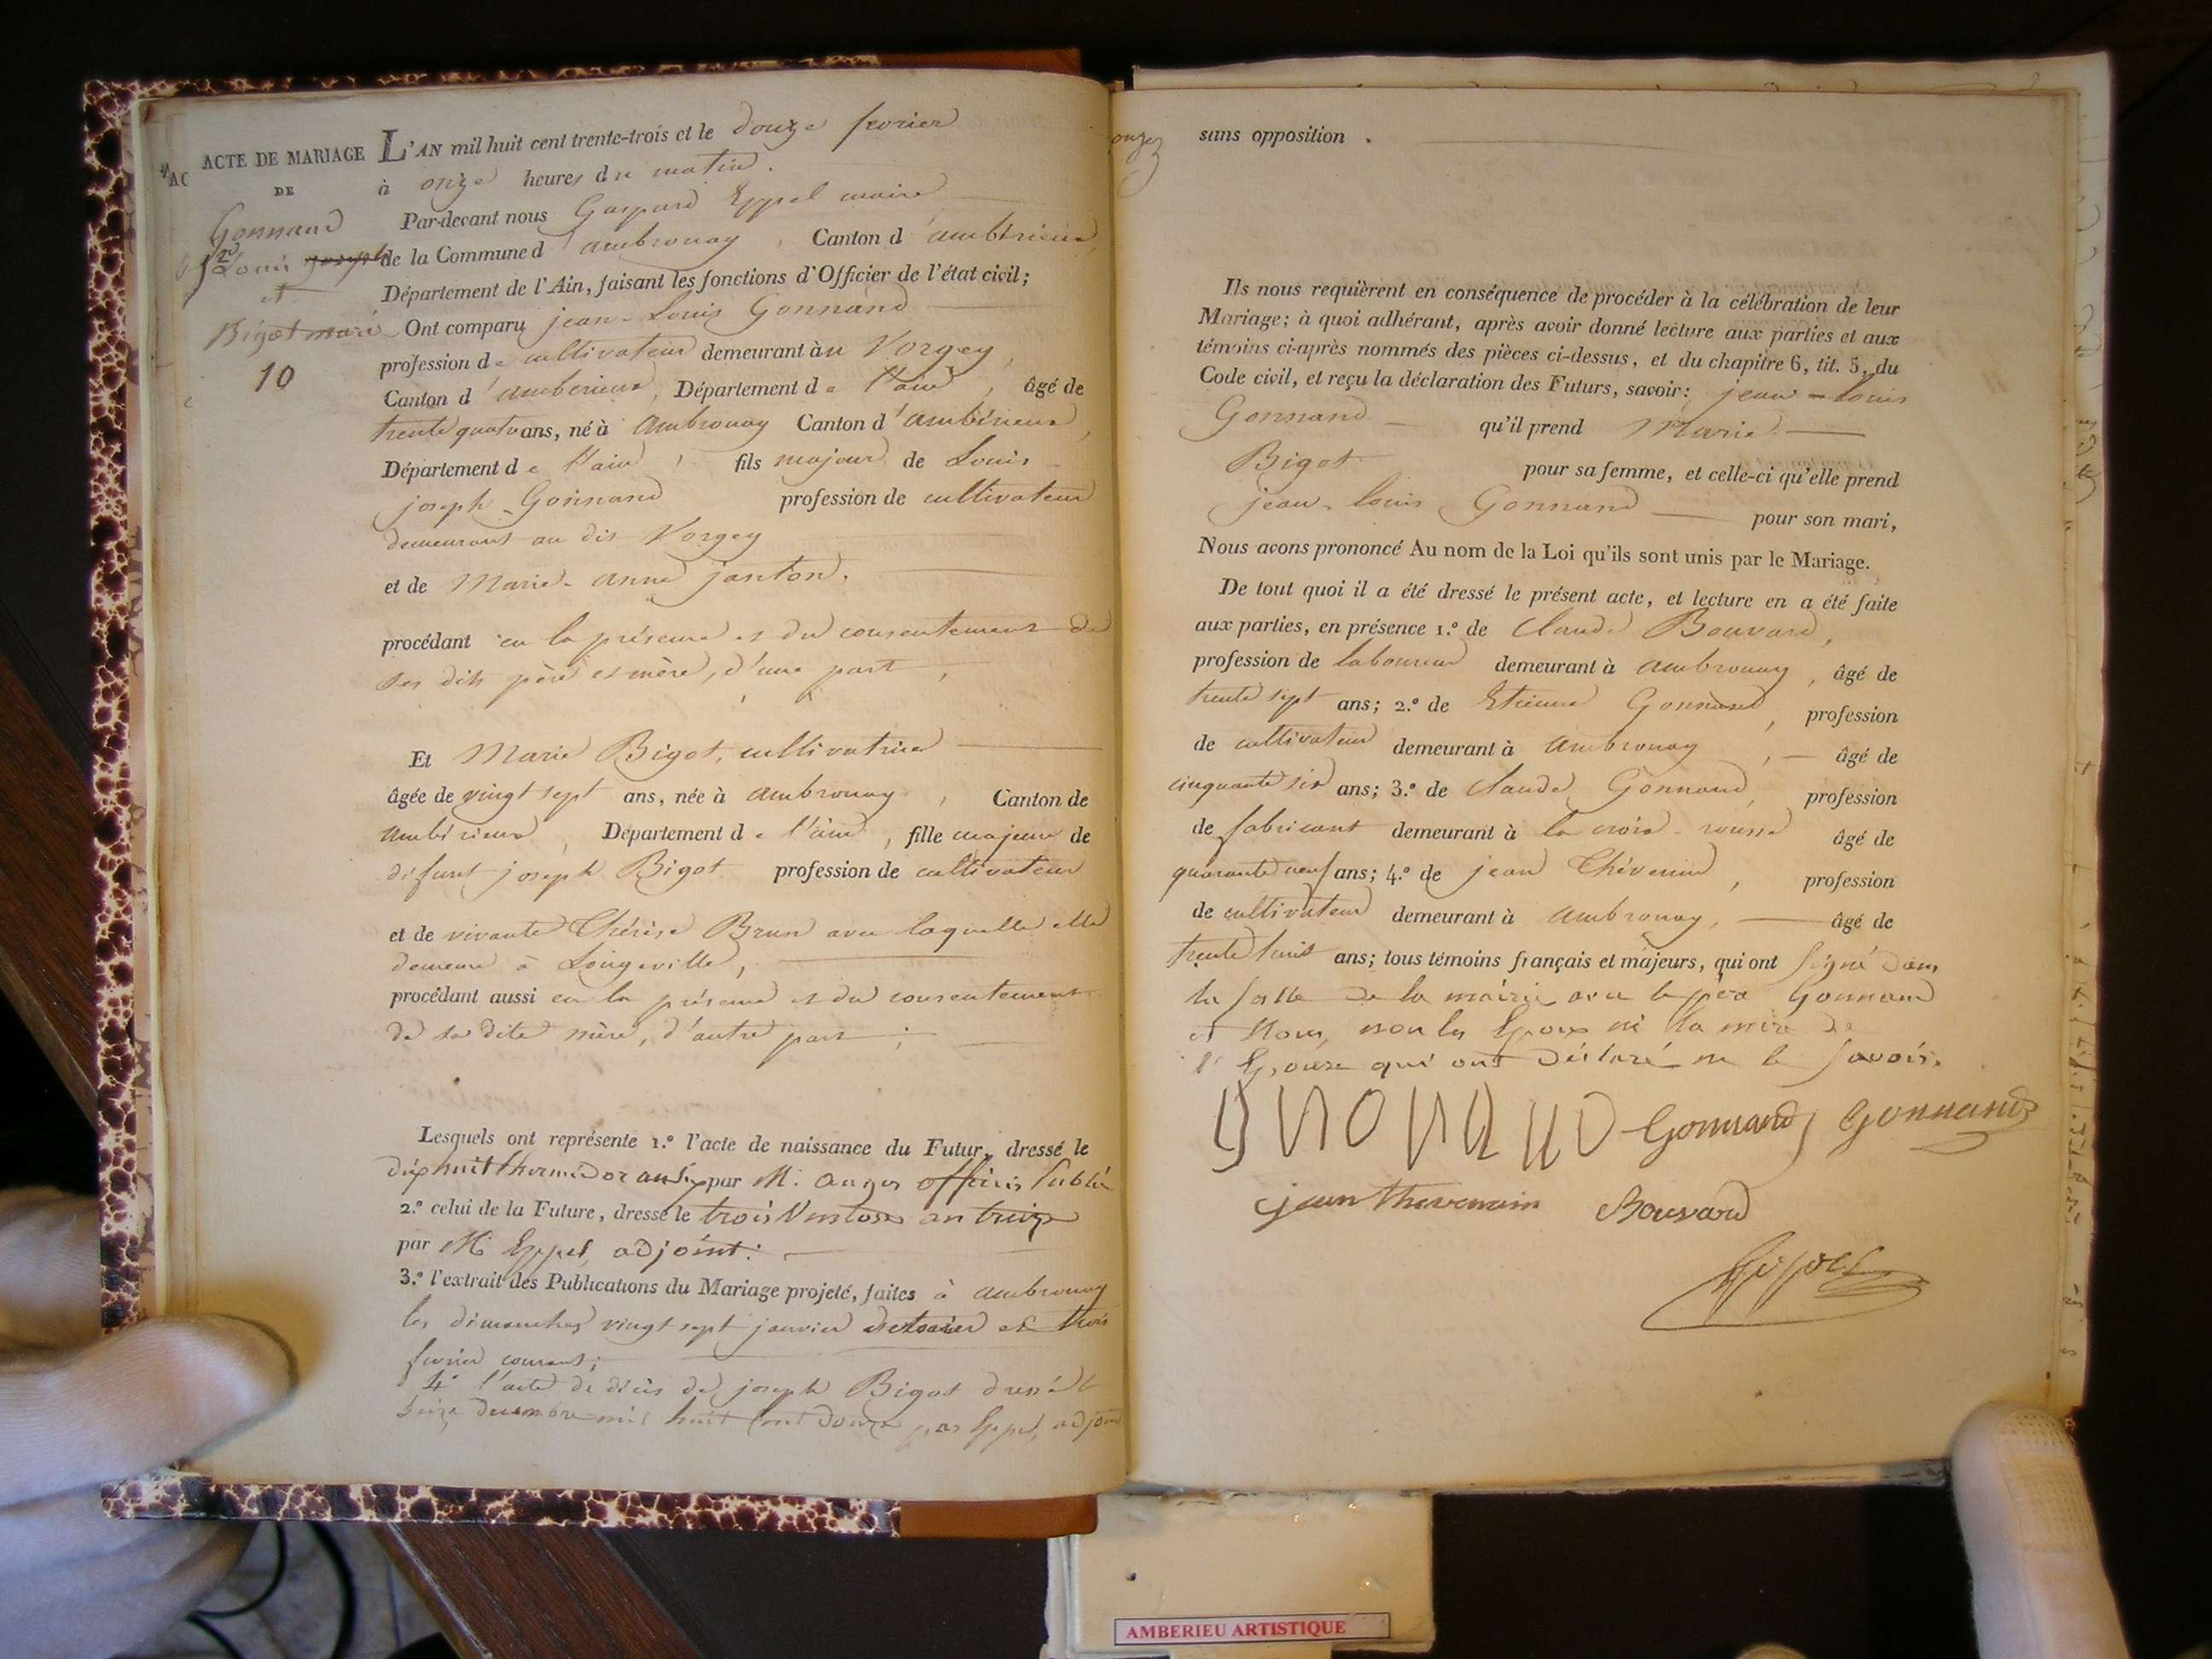 ACTE DE MARIAGE
DE
Gonnand
Louis joseph
et
Bigot marie
10
L'AN mil huit cent trente-trois et le douze fevrier
à onze heures du matin.
Par-devant nous Gaspard Eppel maire
de la Commune d'ambronay, Canton d'ambérieux,
Département de l'Ain, faisant les fonctions d'Officier de l'état civil;
Ont comparu jean-Louis Gonnand
profession de cultivateur demeurant au Vorgey,
Canton d'ambérieux, Département de l'ain, âgé de
trente quatre ans, né à ambronay Canton d'ambérieux,
Département de l'ain, fils majeur de Louis
joseph Gonnand profession de cultivateur
demeurant au dit Vorgey
et de Marie-anne janton.
procédant en la présence et du consentement de
ses dits père et mère, d'une part,
Et Marie Bigot, cultivatrice
âgée de vingt sept ans, née à ambronay, Canton de
ambérieux, Département de l'ain, fille majeure de
défunt joseph Bigot profession de cultivateur
et de vivante Thérèse Brun avec laquelle elle
demeure à Longeville,
procédant aussi en la présence et du consentement
de sa dite mère, d'autre part;
Lesquels ont représenté 1.º l'acte de naissance du Futur, dressé le
dix huit thermidor an six par M. auger officier Public
2.º celui de la Future, dressé le trois Ventose an treize
par Mr Eppel, adjoint:
3.º l'extrait des Publications du Mariage projeté, faites à ambronay
les dimanches vingt sept janvier dernier et trois
fevrier courant;
4º l'acte de décès de joseph Bigot dressé le
seize decembre mil huit cent douze par Eppel, adjoint
sans opposition.
Ils nous requièrent en conséquence de procéder à la célébration de leur
Mariage; à quoi adhérant, après avoir donné lecture aux parties et aux
témoins ci-après nommés des pièces ci-dessus, et du chapitre 6, tit. 5, du
Code civil, et reçu la déclaration des Futurs, savoir: jean-Louis
Gonnand qu'il prend Marie
Bigot pour sa femme, et celle-ci qu'elle prend
jean-louis Gonnand pour son mari,
Nous avons prononcé Au nom de la Loi qu'ils sont unis par le Mariage.
De tout quoi il a été dressé le présent acte, et lecture en a été faite
aux parties, en présence 1.º de Claude Bouvard,
profession de laboureur demeurant à ambronay, âgé de
trente sept ans; 2.º de Etienne Gonnand, profession
de cultivateur demeurant à ambronay, âgé de
cinquante six ans; 3.º de Claude Gonnand, profession
de fabricant demeurant à la croix-rousse âgé de
quarante neuf ans; 4.º de jean Thévenin, profession
de cultivateur demeurant à ambronay, âgé de
trente huit ans; tous témoins français et majeurs, qui ont signé dans
la salle de la mairie avec le père Gonnand
et Nous, non les Epoux ni la mère de
l'Epouse qui ont déclaré ne le savoir.
Gonnand Gonnand
jean thevenain Bouvard
Eppel
AMBERIEU ARTISTIQUE